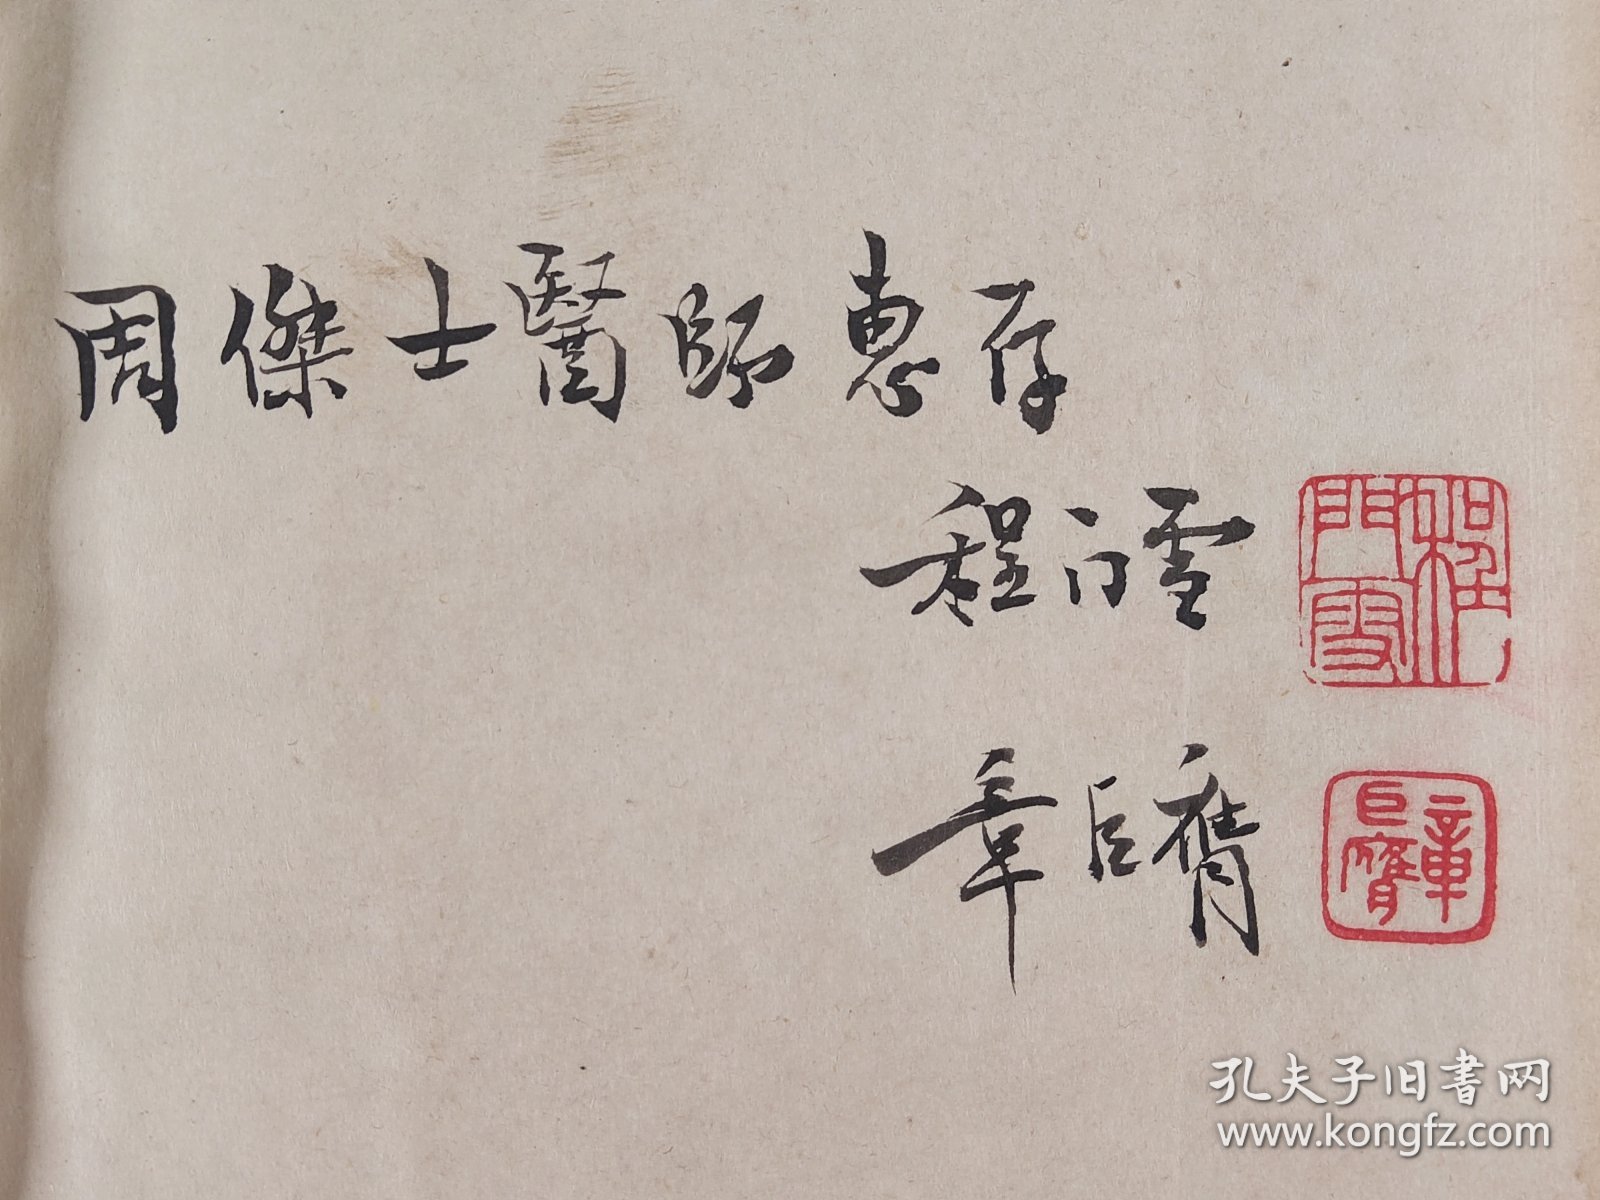 周傑士醫師惠存
程门雪
章巨膺
程門雪印
章巨膺
孔夫子旧书网
www.kongfz.com